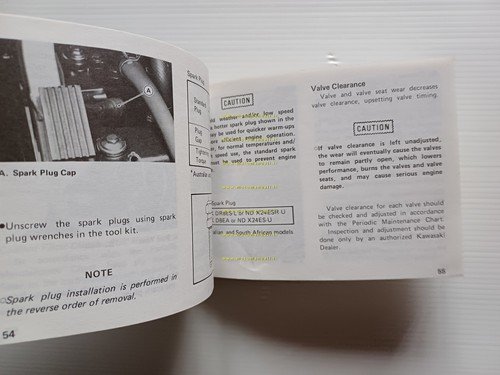 A. Spark Plug Cap
●Unscrew the spark plugs using spark
plug wrenches in the tool kit.
NOTE
○Spark plug installation is performed in
the reverse order of removal.
54
Spark Plug
Standard
Plug
Plug
Gap
Tightening
Torque
CAUTION
weather and/or low speed
hotter spark plug shown in the
may be used for quicker warm-ups
more efficient engine operation.
for normal temperatures and/
speed use, the standard spark
must be used to prevent engine
Spark Plug
or ND X24ESR-U
or ND X24ES-U
and South African models
Valve Clearance
Valve and valve seat wear decreases
valve clearance, upsetting valve timing.
CAUTION
○If valve clearance is left unadjusted,
the wear will eventually cause the valves
to remain partly open, which lowers
performance, burns the valves and valve
seats, and may cause serious engine
damage.
Valve clearance for each valve should
be checked and adjusted in accordance
with the Periodic Maintenance Chart.
Inspection and adjustment should be
done only by an authorized Kawasaki
Dealer.
55